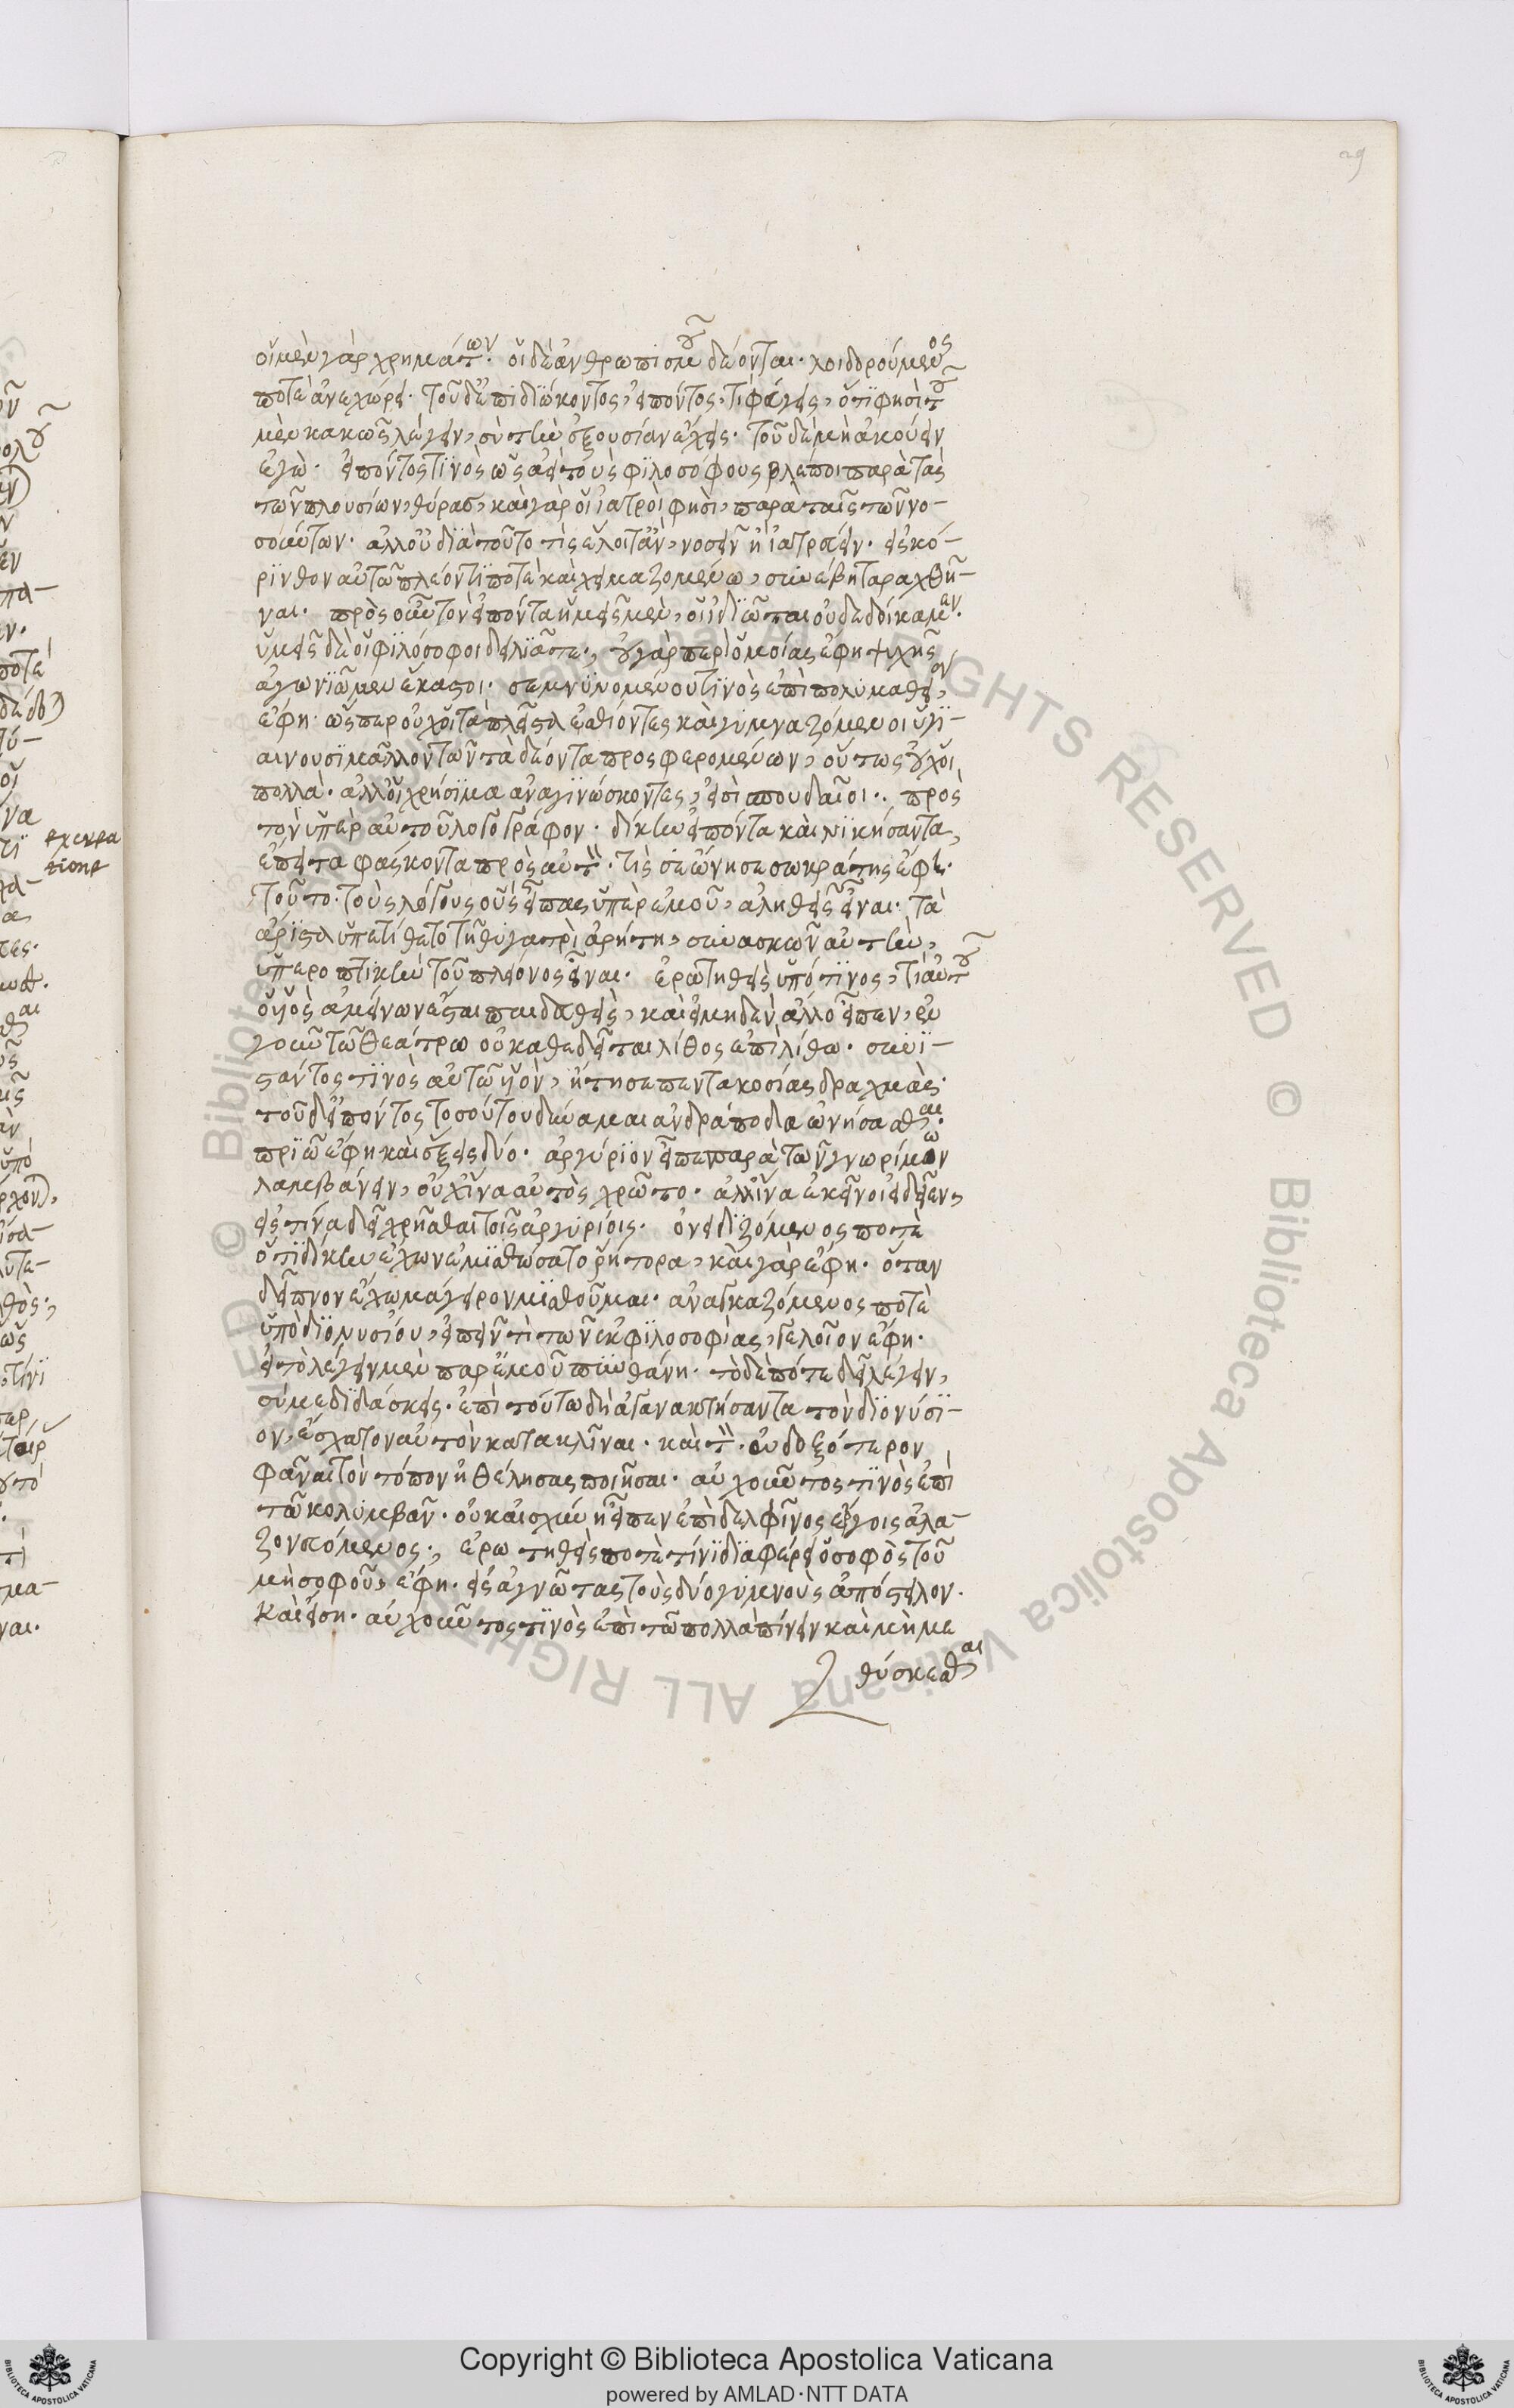 29
οἱ μὲν γὰρ χρημάτων. οἱ δὲ ἀνθρωπισμοῦ δέονται. λοιδορούμενος
ποτὲ ἀνεχώρει. τοῦ δ' ἐπιδιώκοντος, εἰπόντος, τί φεύγεις, ὅτι φησὶ τοῦ
μὲν κακῶς λέγειν, σὺ τὴν ἐξουσίαν ἔχεις. τοῦ δὲ μὴ ἀκούειν
ἐγὼ. εἰπόντος τινὸς ὡς ἀεὶ τοὺς φιλοσόφους βλέποι παρὰ ταῖς
τῶν πλουσίων θύραις, καὶ γὰρ οἱ ἰατροὶ φησὶ, παρὰ ταῖς τῶν νο-
σούντων. ἀλλ' οὐ διὰ τοῦτο τὶς ἕλοιτ' ἂν, νοσεῖν ἢ ἰατρεύειν. εἰς κό-
ρινθον αὐτῶ πλέοντί ποτε καὶ χειμαζομένω, συνέβη ταραχθῆ-
ναι. πρὸς οὖν τὸν εἰπόντα ἡμεῖς μὲν, οἱ ἰδιῶται οὐ δεδοίκαμεν.
ὑμεῖς δὲ οἱ φιλόσοφοι δειλιᾶτε., οὐ γὰρ περὶ ὁμοίας ἔφη ψυχῆς
ἀγωνιῶμεν ἕκαστοι. σεμνυνομένου τινὸς ἐπὶ πολυμαθείᾳ,
ἔφη. ὥσπερ οὐχ οἱ τὰ πλεῖστα ἐσθίοντες καὶ γυμναζόμενοι ὑγι-
αινουσι μᾶλλον τῶν τὰ δέοντα προσφερομένων, οὕτως οὐχ οἱ
πολλὰ. ἀλλ' οἱ χρήσιμα ἀναγινώσκοντες, εἰσὶ σπουδαῖοι.. πρὸς
τὸν ὑπὲρ αὐτοῦ λογογράφον. δίκην εἰπόντα καὶ νικήσαντα,
ἔπειτα φάσκοντα πρὸς αὐτὸν. τί σε ὤνησε σωκράτης ἔφη.
τοῦτο. τοὺς λόγους οὓς εἶπας ὑπὲρ ἐμοῦ, ἀληθεῖς εἶναι. τὰ
ἄριστα ὑπετίθετο τῆ θυγατρὶ ἀρήτη, συνασκῶν αὐτὴν,
ὑπεροπτικὴν τοῦ πλείονος εἶναι. ἐρωτηθεὶς ὑπό τινος, τί αὐτοῦ
ὁ υἱὸς ἀμείνων ἔσται παιδευθεὶς, καὶ εἰ μηδὲν ἄλλο εἶπεν, ἐν
γοῦν τῶ θεάτρω οὐ καθεδεῖται λίθος ἐπὶ λίθω. συνι-
στάντος τινὸς αὐτῶ υἱὸν, ἤτησε πεντακοσίας δραχμὰς.
τοῦ δ' εἰπόντος τοσούτου δύναμαι ἀνδράποδα ὠνήσασθαι.
πρίω ἔφη καὶ ἕξεις δύο. ἀργύριον εἶπε παρὰ τῶν γνωρίμων
λαμβάνειν, οὐχ ἵνα αὐτὸς χρῶτο. ἀλλ' ἵνα ἐκεῖνοι εἰδεῖεν,
εἰς τίνα δεῖ χρῆσθαι τοῖς ἀργυρίοις. ὀνειδιζόμενος ποτὲ
ὅτι δίκην ἔχων ἐμισθώσατο ῥήτορα, καὶ γὰρ ἔφη. ὅταν
δεῖπνον ἔχω μάγειρον μισθοῦμαι. ἀναγκαζόμενος ποτὲ
ὑπὸ διονυσίου, εἰπεῖν τὶ τῶν ἐκ φιλοσοφίας, γελοῖον ἔφη.
εἰ τὸ λέγειν μὲν παρ' ἐμοῦ πυνθάνη. τὸ δὲ πότε δεῖ λέγειν,
σύ με διδάσκεις. ἐπὶ τούτω δὴ ἀγανακτήσαντα τὸν διονύσι-
ον, ἔσχατον αὐτὸν κατακλῖναι. καὶ τὸν. ἐνδοξότερον
φᾶναι τὸν τόπον ἠθέλησας ποιῆσαι. αὐχοῦντος τινὸς ἐπὶ
τῶ κολυμβᾶν. οὐκ αἰσχύνη εἶπεν ἐπὶ δελφῖνος ἔργοις ἀλα-
ζονευόμενος., ἐρωτηθεὶς ποτὲ τίνι διαφέρει ὁ σοφὸς τοῦ
μὴ σοφοῦ, ἔφη. εἰς ἀγνῶτας τοὺς δύο γυμνοὺς ἀπόστειλον.
καὶ εἴση. αὐχοῦντος τινὸς ἐπὶ τῶ πολλὰ πίνειν καὶ μὴ με
θύσκεσθαι
Copyright © Biblioteca Apostolica Vaticana
powered by AMLAD·NTT DATA